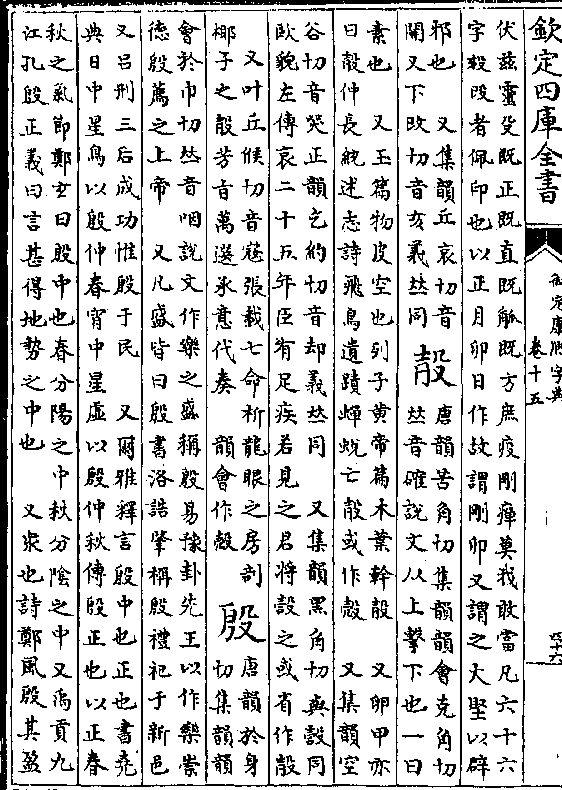 欽定四庫全書
御定康熙字典
卷十五
四十六
伏兹靈殳既正既直既觚既方庶疫剛癉莫我敢當凡六十六
字㱾改者佩印也以正月卯日作故謂剛卯又謂之大堅以辟
邪也　又集韻丘哀切音
開又下改切音亥義𠀤同
㱿
唐韻苦角切集韻韻會克角切
𠀤音確說文从上擊下也一曰
素也　又玉篇物皮空也列子黄帝篇木葉幹㱿　又卵甲亦
曰㱿仲長統述志詩飛鳥遺蹟蟬蛻亡㱿或作殼　又集韻空
谷切音哭正韻乞約切音却義𠀤同　又集韻黑角切與㱿同
歐貌左傳哀二十五年臣有足疾若見之君將㱿之或省作㱿
又叶丘候切音寇張載七命析龍眼之房剖
椰子之㱿芳旨萬選承意代奏　韻會作殼
殷
唐韻於身
切集韻韻
會於巾切𠀤音咽說文作樂之盛稱殷易豫卦先王以作樂崇
德殷薦之上帝　又凡盛皆曰殷書洛誥肇稱殷禮祀于新邑
又呂刑三后成功惟殷于民　又爾雅釋言殷中也正也書堯
典日中星鳥以殷仲春宵中星虛以殷仲秋傳殷正也以正春
秋之氣節鄭玄曰殷中也春分陽之中秋分陰之中又禹貢九
江孔殷正義曰言甚得地勢之中也　又衆也詩鄭風殷其盈